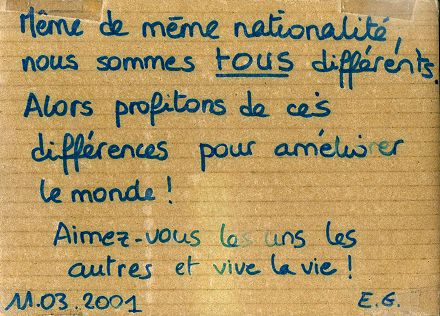 Même de même nationalité,
nous sommes TOUS différents.
Alors profitons de ces
différences pour améliorer
le monde !
Aimez-vous les uns les
autres et vive la vie !
11.03.2001 E.G.